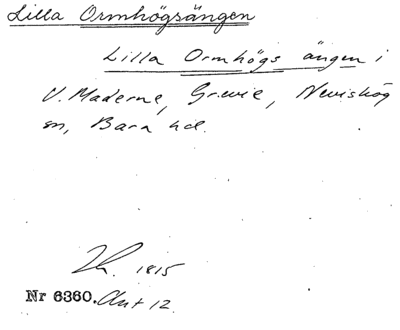 Lilla Ormhögsängen
Lilla Ormhögs ängen i
V. Maderne, Grevie, Nevishög
sn, Bara hd.
1815
Nr 6360. Akt 12.